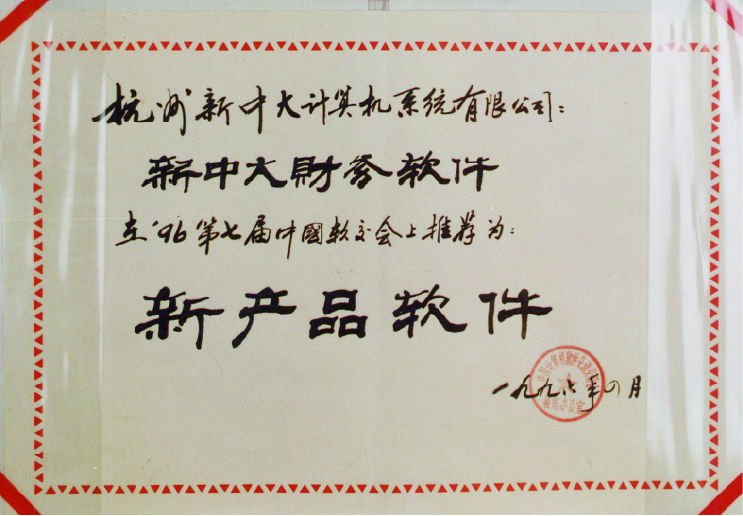 杭州新中大计算机系统有限公司:
新中大財务软件
在'96第七届中國软交会上推荐为:
新产品软件
一九九六年四月